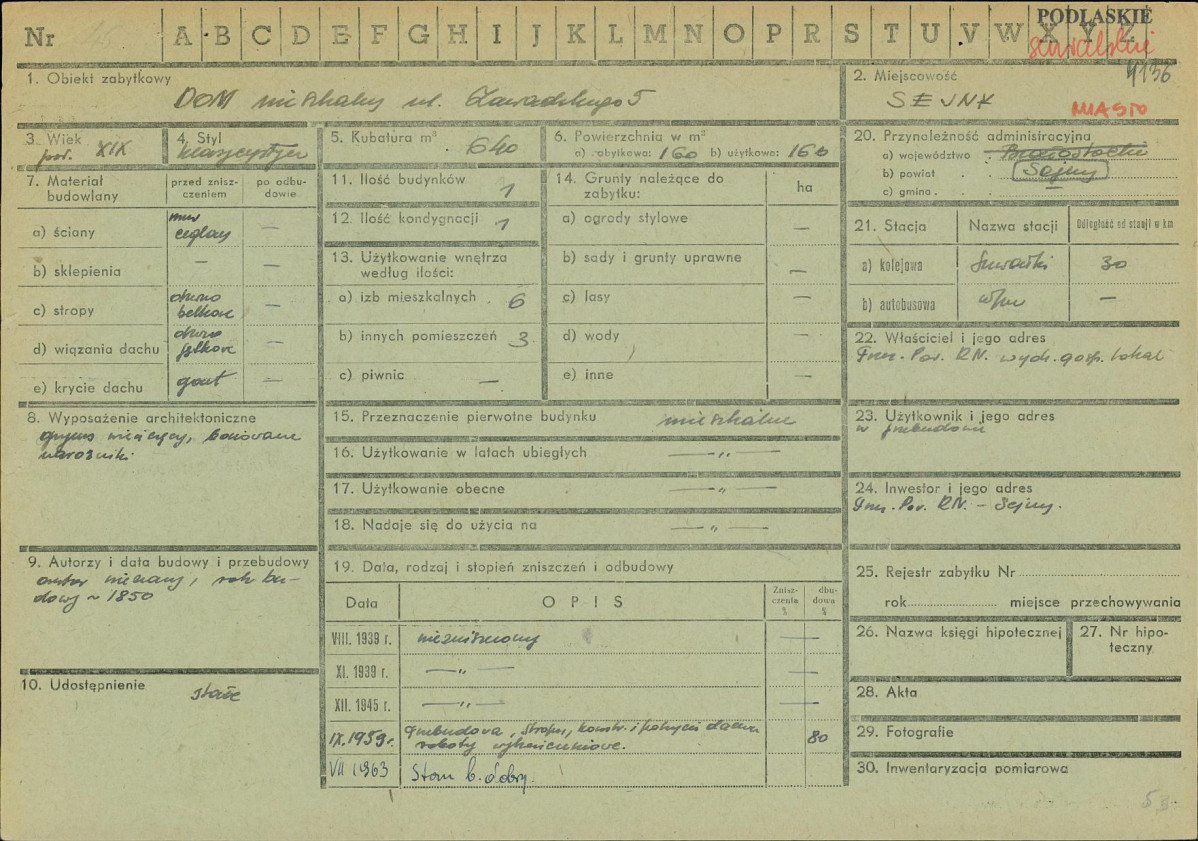 PODLASKIE
suwalskie
Nr A B C D E F G H I J K L M N O P R S T U V W X Y Z
4136
1. Obiekt zabytkowy
DOM mieszkalny ul. Zawadzkiego 5
2. Miejscowość
SEJNY
MIASTO
3. Wiek
poł. XIX
4. Styl
klasycystycz
5. Kubatura m³
640
6. Powierzchnia w m²
a) zabytkowa: 160 b) użytkowa: 160
20. Przynależność administracyjna
a) województwo . Białostockie
b) powiat . . Sejny
c) gmina . .
7. Materiał budowlany
przed zniszczeniem
po odbudowie
a) ściany
mur
ceglany
—
b) sklepienia
—
—
c) stropy
drewno
belkowe
—
d) wiązania dachu
drewno
—
e) krycie dachu
gont
—
11. Ilość budynków
1
12. Ilość kondygnacji
1
13. Użytkowanie wnętrza
według ilości:
a) izb mieszkalnych . 6
b) innych pomieszczeń 3
c) piwnic —
14. Grunty należące do
zabytku:
ha
a) ogrody stylowe —
b) sady i grunty uprawne —
c) lasy —
d) wody —
e) inne —
21. Stacja
Nazwa stacji
Odległość od stacji w km
a) kolejowa Suwałki 30
b) autobusowa —
22. Właściciel i jego adres
Prez. Pow. R.N. wydz. gosp. lokal
8. Wyposażenie architektoniczne
gzyms wieńczący, boniowane
narożniki
15. Przeznaczenie pierwotne budynku mieszkalne
16. Użytkowanie w latach ubiegłych —„—
17. Użytkowanie obecne —„—
18. Nadaje się do użycia na —„—
23. Użytkownik i jego adres
w przebudowie
24. Inwestor i jego adres
Prez. Pow. R.N. - Sejny.
9. Autorzy i data budowy i przebudowy
autor nieznany, rok bu-
dowy ~ 1850
19. Data, rodzaj i stopień zniszczeń i odbudowy
Data
OPIS
Zniszczenia %
dbudowa %
VIII. 1939 r. niezniszczony —
XI. 1939 r. —„— —
XII. 1945 r. —„— —
IX. 1959 r. przebudowa, stropu, konstr. i pokrycia dachu
roboty wykończeniowe. 80
VII 1963 Stan b. dobry.
25. Rejestr zabytku Nr
rok miejsce przechowywania
26. Nazwa księgi hipotecznej
27. Nr hipoteczny
10. Udostępnienie
stałe
28. Akta
29. Fotografie
30. Inwentaryzacja pomiarowa